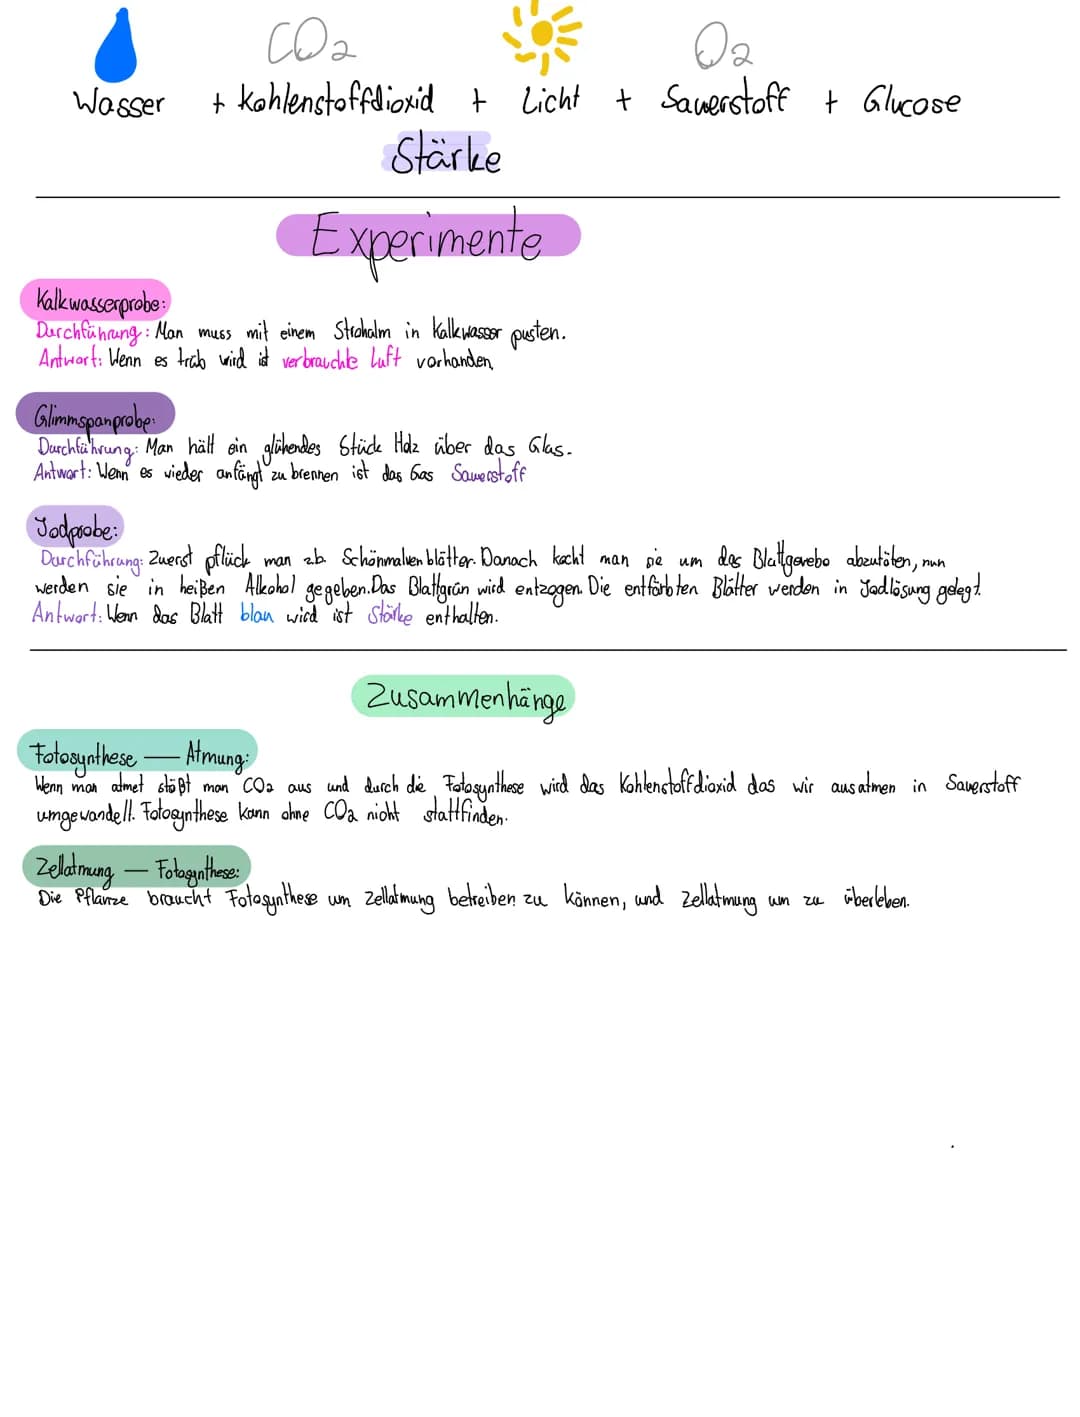 CO2 O2
Wasser + Kohlenstoffdioxid + Licht + Sauerstoff + Glucose
Stärke
Experimente
Kalkwasserprobe:
Durchführung: Man muss mit einem Strohalm in Kalkwasser pusten.
Antwort: Wenn es trüb wird ist verbrauchte Luft vorhanden.
Glimmspanprobe:
Durchführung: Man hält ein glühendes Stück Holz über das Glas.
Antwort: Wenn es wieder anfängt zu brennen ist das Gas Sauerstoff
Jodprobe:
Durchführung: Zuerst pflück man zb. Schönmalvenblätter. Danach kocht man sie um das Blattgewebe abzutöten, nun
werden sie in heißen Alkohol gegeben. Das Blattgrün wird entzogen. Die entfärbten Blätter werden in Jodlösung gelegt.
Antwort: Wenn das Blatt blau wird ist Stärke enthalten.
Zusammenhänge
Fotosynthese — Atmung:
Wenn man atmet stößt man CO2 aus und durch die Fotosynthese wird das Kohlenstoffdioxid das wir ausatmen in Sauerstoff
umgewandelt. Fotosynthese kann ohne CO2 nicht stattfinden.
Zellatmung — Fotosynthese:
Die Pflanze braucht Fotosynthese um Zellatmung betreiben zu können, und Zellatmung um zu überleben.